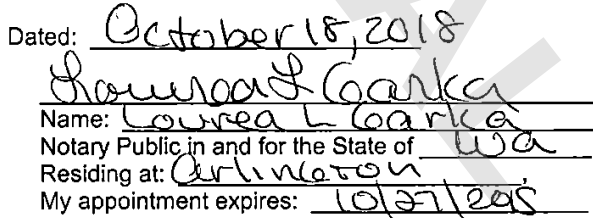 Dated: October 18, 2018
Lourea L Garka
Name: Lourea L Garka
Notary Public in and for the State of Wa
Residing at: Arlington
My appointment expires: 10/27/2018